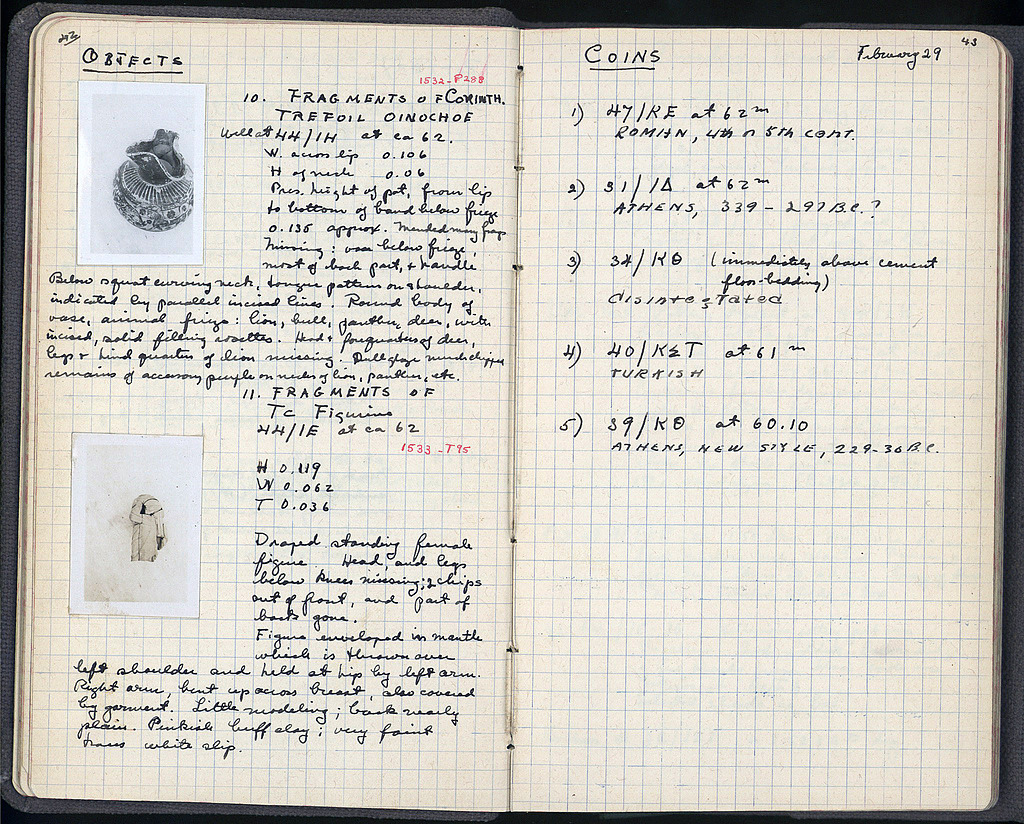 OBJECTS
1532-P288
10. FRAGMENTS OF CORINTH.
TREFOIL OINOCHOE
Well at 44/ΙΗ at ca 62.
W. across lip 0.106
H of neck 0.06
Pres. height of pot, from lip
to bottom of band below frieze
0.135 approx. Mended many frags
Missing: vase below frieze,
most of back part, & handle
Below squat curving neck, tongue pattern on shoulder,
indicated by parallel incised lines. Round body of
vase, animal frieze: lion, bull, panther, deer, with
incised, solid filling rosettes. Head & forequarters of deer,
legs & hind quarters of lion missing. Dull glaze much chipped
remains of accessory purple on necks of lion, panther, etc.
11. FRAGMENTS OF
TC Figurine
44/ΙΕ at ca 62
1533-T95
H 0.119
W 0.062
T 0.036
Draped standing female
figure. Head, and legs
below knees missing; 2 chips
out of front, and part of
back gone.
Figure enveloped in mantle
which is thrown over
left shoulder and held at hip by left arm.
Right arm, bent up across breast, also covered
by garment. Little modeling; back nearly
plain. Pinkish buff clay; very faint
traces white slip.
43
COINS February 29
1) 47/ΚΕ at 62 m
ROMAN, 4th or 5th CENT.
2) 31/ΙΔ at 62 m
ATHENS, 339-297 B.C.?
3) 34/ΚΘ (immediately above cement
floor-bedding)
disintegrated
4) 40/ΚΣΤ at 61 m
TURKISH
5) 39/ΚΘ at 60.10
ATHENS, NEW STYLE, 229-30 B.C.